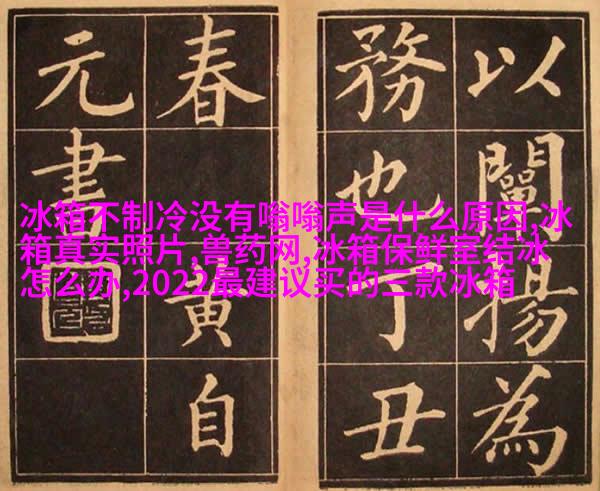 以闡揚為
務也丁丑
春黄自
元書
冰箱不制冷没有嗡嗡声是什么原因,冰
箱真实照片,兽药网,冰箱保鲜室结冰
怎么办,2022最建议买的三款冰箱